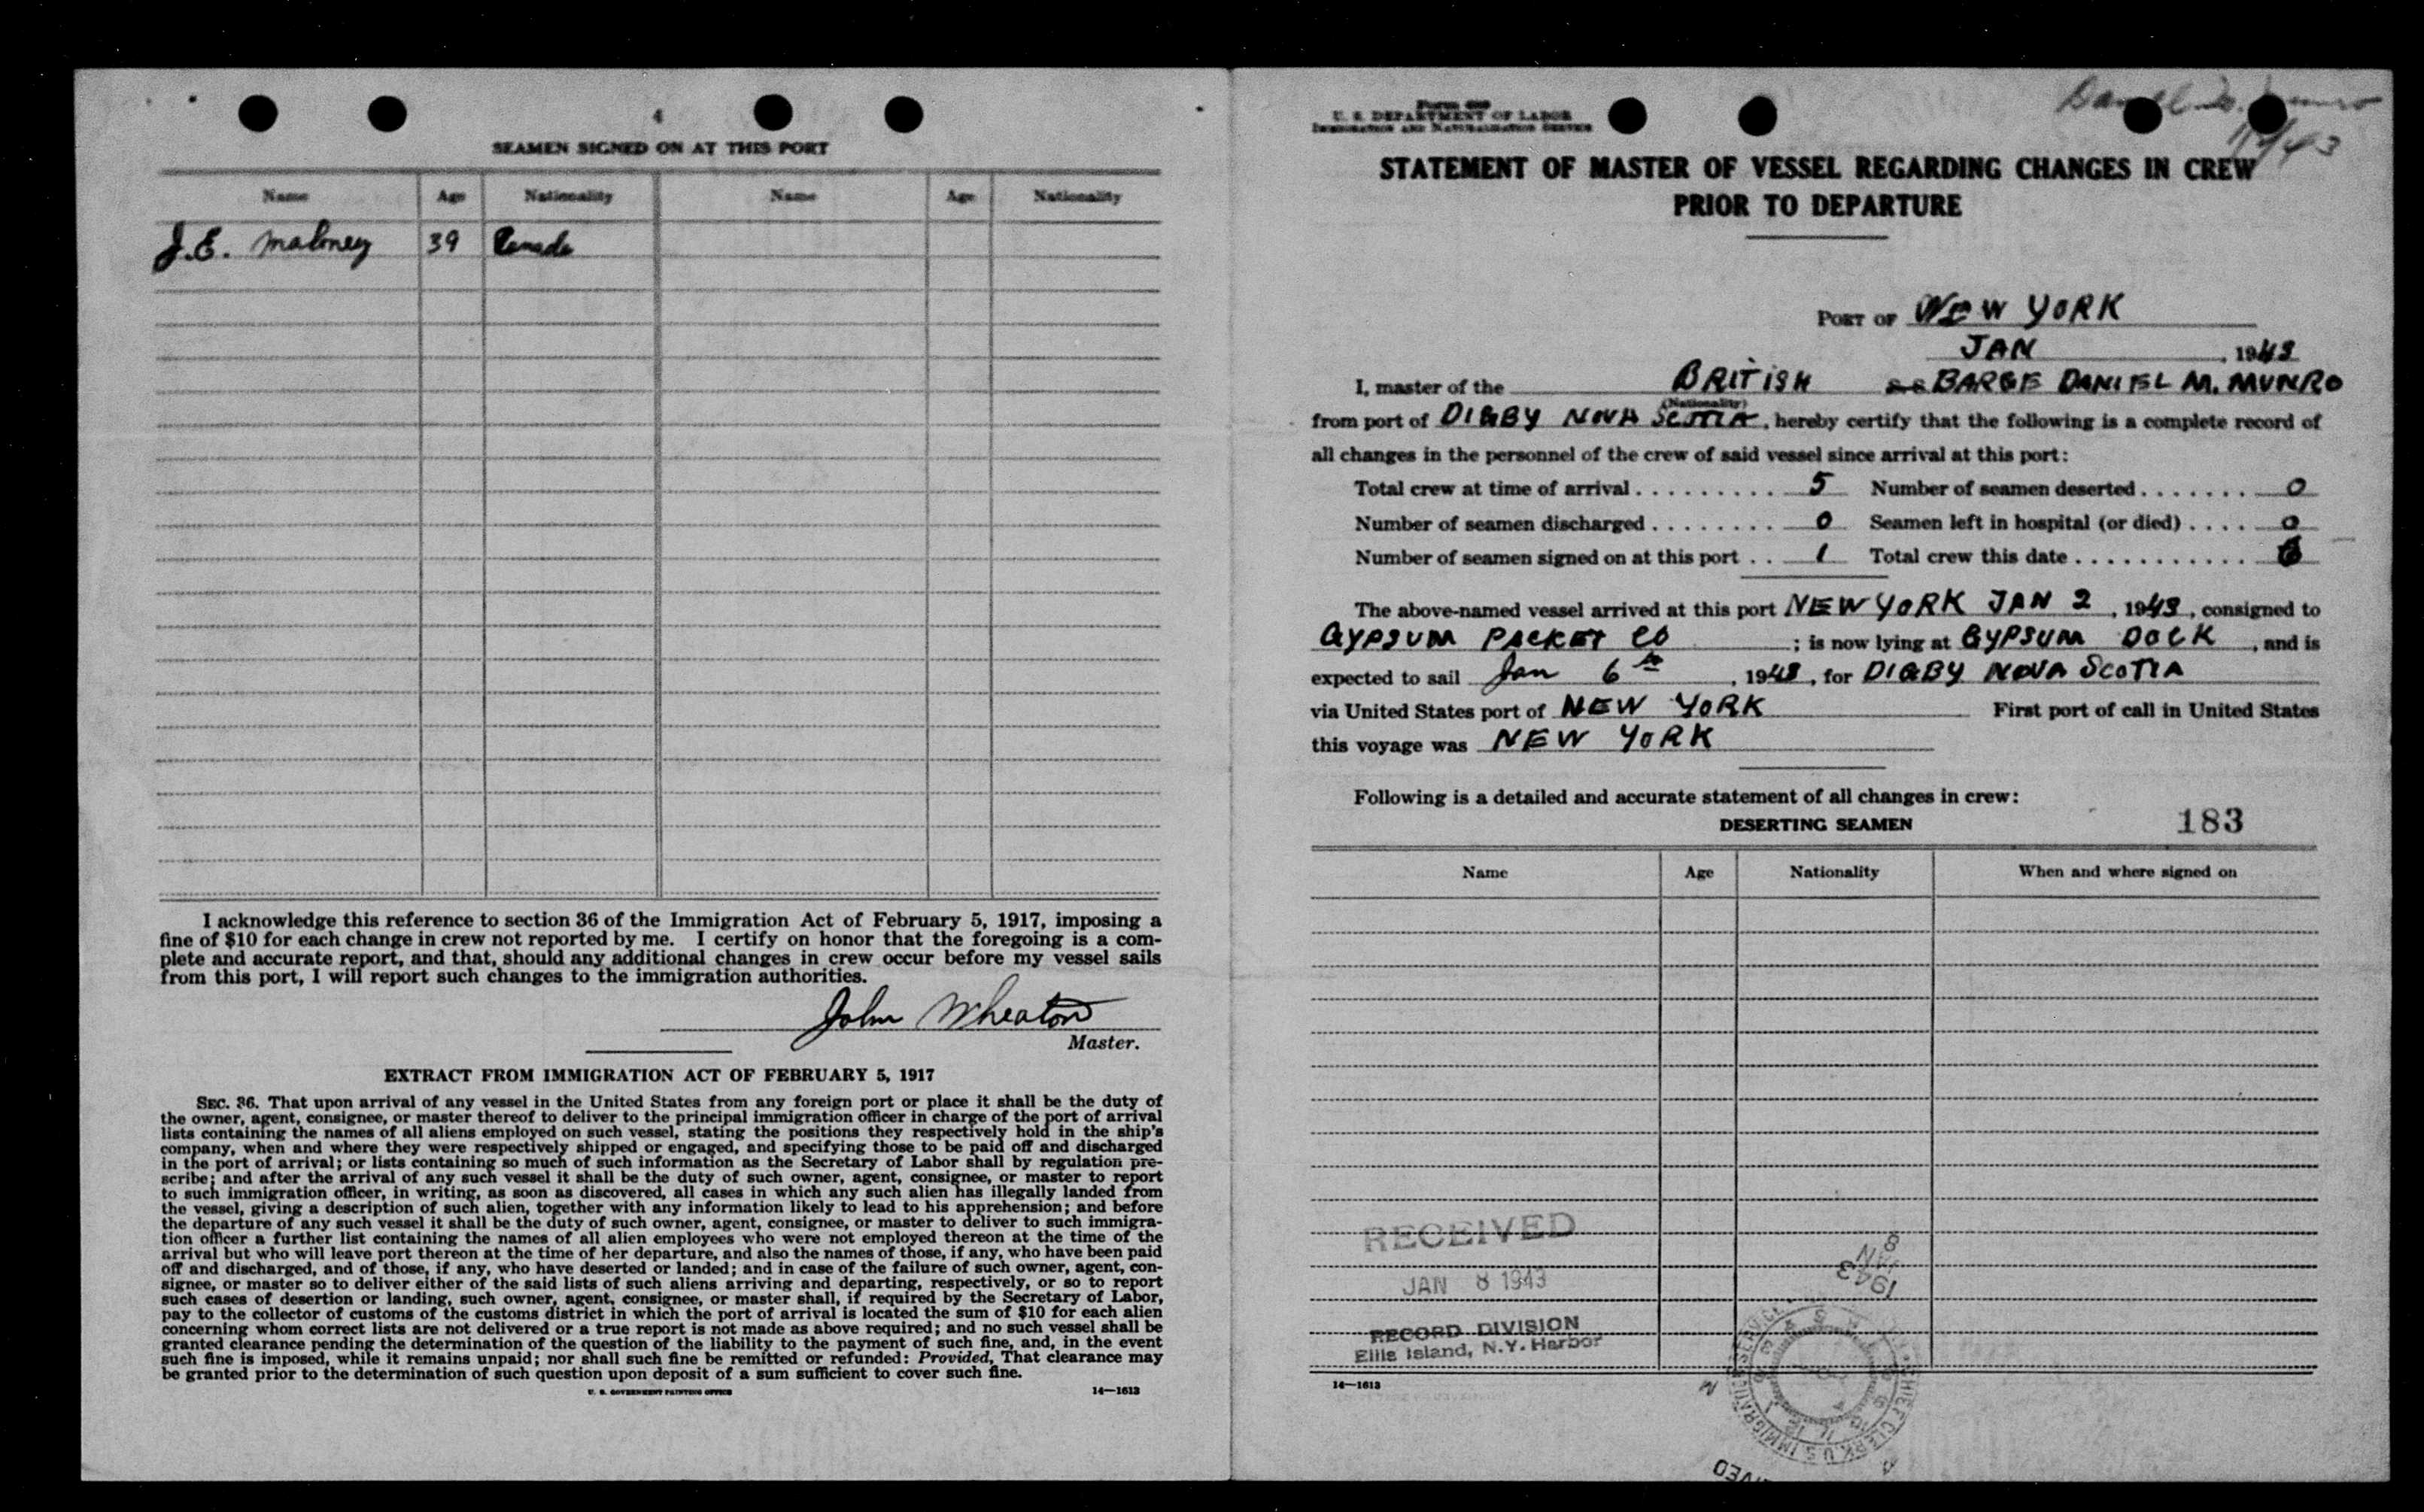 4
SEAMEN SIGNED ON AT THIS PORT
Name Age Nationality Name Age Nationality
J.E. Maloney 39 Canada
I acknowledge this reference to section 36 of the Immigration Act of February 5, 1917, imposing a
fine of $10 for each change in crew not reported by me. I certify on honor that the foregoing is a com-
plete and accurate report, and that, should any additional changes in crew occur before my vessel sails
from this port, I will report such changes to the immigration authorities.
John Wheaton
Master.
EXTRACT FROM IMMIGRATION ACT OF FEBRUARY 5, 1917
SEC. 36. That upon arrival of any vessel in the United States from any foreign port or place it shall be the duty of
the owner, agent, consignee, or master thereof to deliver to the principal immigration officer in charge of the port of arrival
lists containing the names of all aliens employed on such vessel, stating the positions they respectively hold in the ship's
company, when and where they were respectively shipped or engaged, and specifying those to be paid off and discharged
in the port of arrival; or lists containing so much of such information as the Secretary of Labor shall by regulation pre-
scribe; and after the arrival of any such vessel it shall be the duty of such owner, agent, consignee, or master to report
to such immigration officer, in writing, as soon as discovered, all cases in which any such alien has illegally landed from
the vessel, giving a description of such alien, together with any information likely to lead to his apprehension; and before
the departure of any such vessel it shall be the duty of such owner, agent, consignee, or master to deliver to such immigra-
tion officer a further list containing the names of all alien employees who were not employed thereon at the time of the
arrival but who will leave port thereon at the time of her departure, and also the names of those, if any, who have been paid
off and discharged, and of those, if any, who have deserted or landed; and in case of the failure of such owner, agent, con-
signee, or master so to deliver either of the said lists of such aliens arriving and departing, respectively, or so to report
such cases of desertion or landing, such owner, agent, consignee, or master shall, if required by the Secretary of Labor,
pay to the collector of customs of the customs district in which the port of arrival is located the sum of $10 for each alien
concerning whom correct lists are not delivered or a true report is not made as above required; and no such vessel shall be
granted clearance pending the determination of the question of the liability to the payment of such fine, and, in the event
such fine is imposed, while it remains unpaid; nor shall such fine be remitted or refunded: Provided, That clearance may
be granted prior to the determination of such question upon deposit of a sum sufficient to cover such fine.
U. S. GOVERNMENT PRINTING OFFICE 14—1613
Form 689
U. S. DEPARTMENT OF LABOR
IMMIGRATION AND NATURALIZATION SERVICE
STATEMENT OF MASTER OF VESSEL REGARDING CHANGES IN CREW
PRIOR TO DEPARTURE
PORT OF NEW YORK
JAN, 1943
I, master of the BRITISH SS BARGE DANIEL M. MUNRO
(Nationality)
from port of DIGBY NOVA SCOTIA, hereby certify that the following is a complete record of
all changes in the personnel of the crew of said vessel since arrival at this port:
Total crew at time of arrival . . . . . . . . . . 5 Number of seamen deserted . . . . . . . 0
Number of seamen discharged . . . . . . . . 0 Seamen left in hospital (or died) . . . . 0
Number of seamen signed on at this port . . 1 Total crew this date . . . . . . . . . . . . 6
The above-named vessel arrived at this port NEW YORK JAN 2, 1943, consigned to
GYPSUM PACKET CO ; is now lying at GYPSUM DOCK, and is
expected to sail Jan 6th, 1943, for DIGBY NOVA SCOTIA
via United States port of NEW YORK First port of call in United States
this voyage was NEW YORK
Following is a detailed and accurate statement of all changes in crew:
DESERTING SEAMEN 183
Name Age Nationality When and where signed on
RECEIVED
JAN 8 1943
RECORD DIVISION
Ellis Island, N.Y. Harbor
8
JAN
1943
14—1613